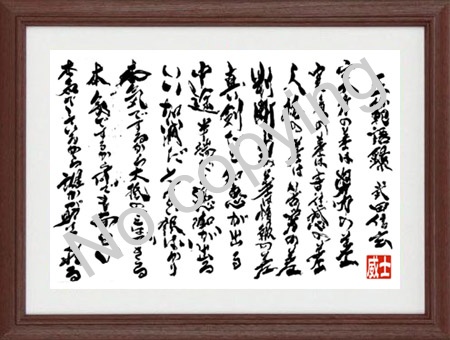 語録 武田信玄
実力の差は努力の差
実績の差は責任感の差
人格の差は苦労の差
判断力の差は情報の差
真剣だと知恵が出る
中途半端だと愚痴が出る
いい加減だと言い訳ばかり
本気でするから大抵のことはできる
本気でするから何でも面白い
本気でしているから誰かが助けてくれる
威士
No copying